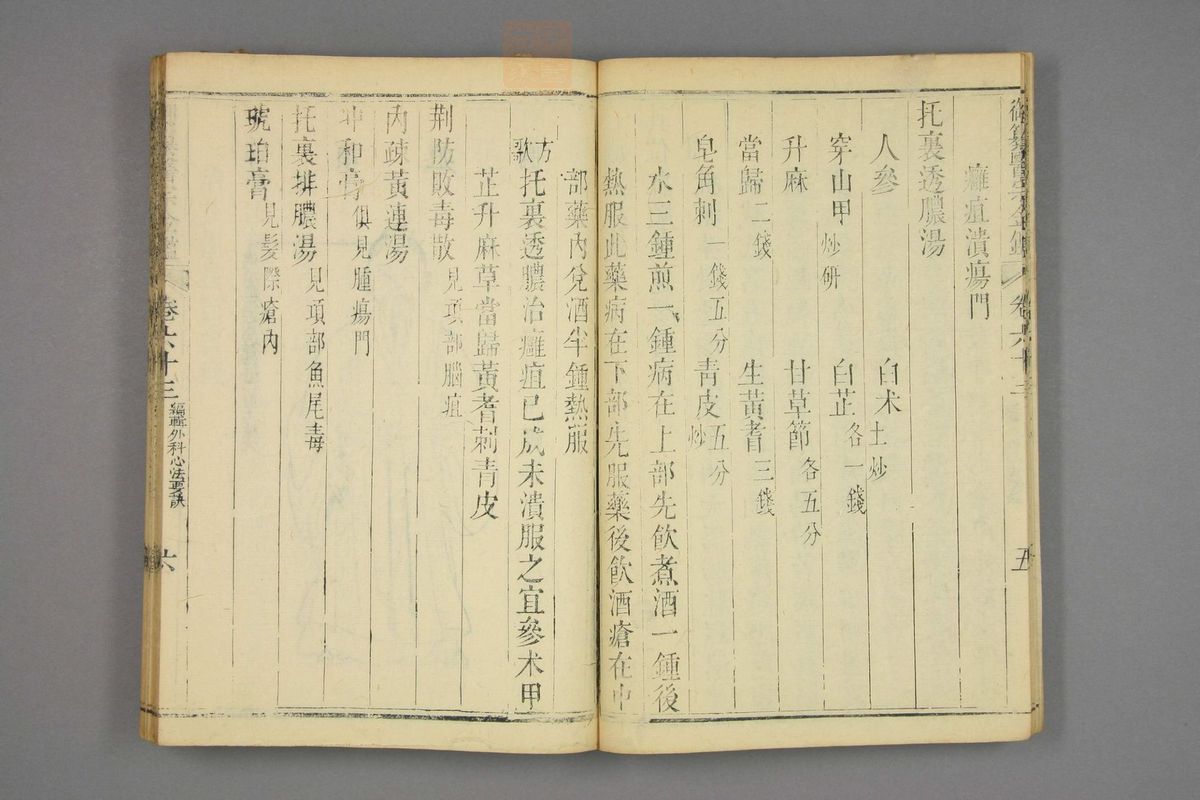 御纂醫宗金鑑 卷六十三 五
癰疽潰瘍門
托裏透膿湯
人參 白朮土炒
穿山甲炒研 白芷各一錢
升麻 甘草節各五分
當歸二錢 生黃耆三錢
皂角刺一錢五分 青皮五分炒
水三鍾煎一鍾病在上部先飲煮酒一鍾後
熱服此藥病在下部先服藥後飲酒瘡在中
部藥內兌酒半鍾熱服
方歌 托裏透膿治癰疽已成未潰服之宜參术甲
芷升麻草當歸黃耆刺青皮
荆防敗毒散見項部腦疽
內疎黃連湯
冲和膏俱見腫瘍門
托裏排膿湯見項部魚尾毒
琥珀膏見髮際瘡內
卷六十三 編輯外科心法要訣 六